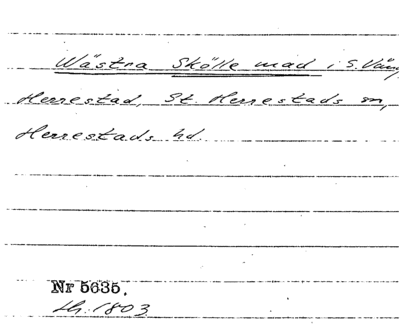 Wästra Skölle mad i S. Väng,
Herrestad, St. Herrestads sn,
Herrestads hd.
Nr 5635.
1803